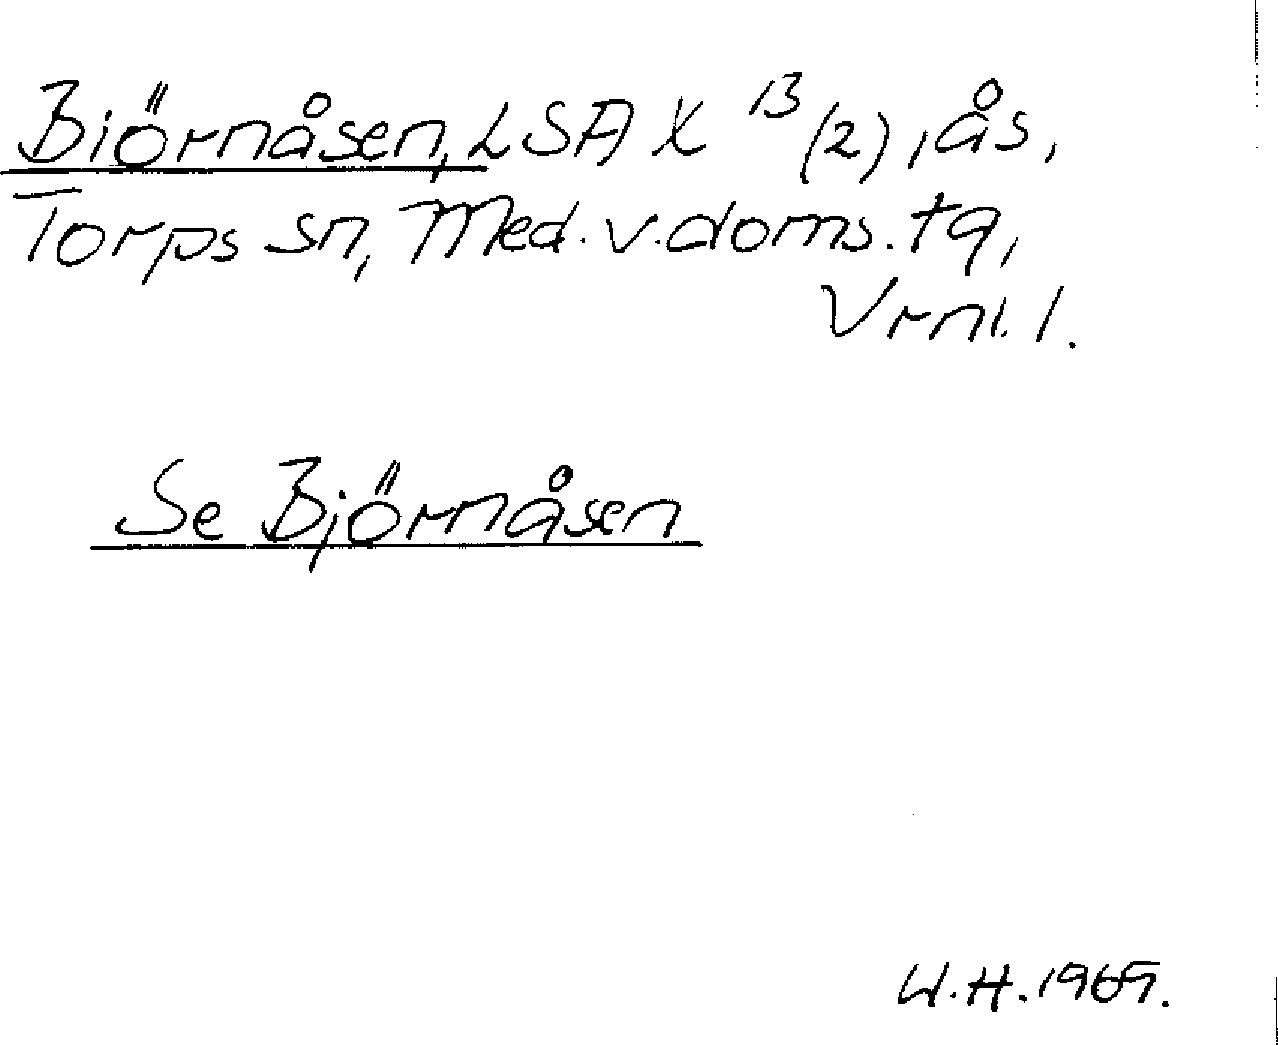 Biörnåsen, LSA X 13 (2), ås,
Torps sn, Med. v. doms. tg,
Vrnl. l.
Se Björnåsen
W.H. 1969.